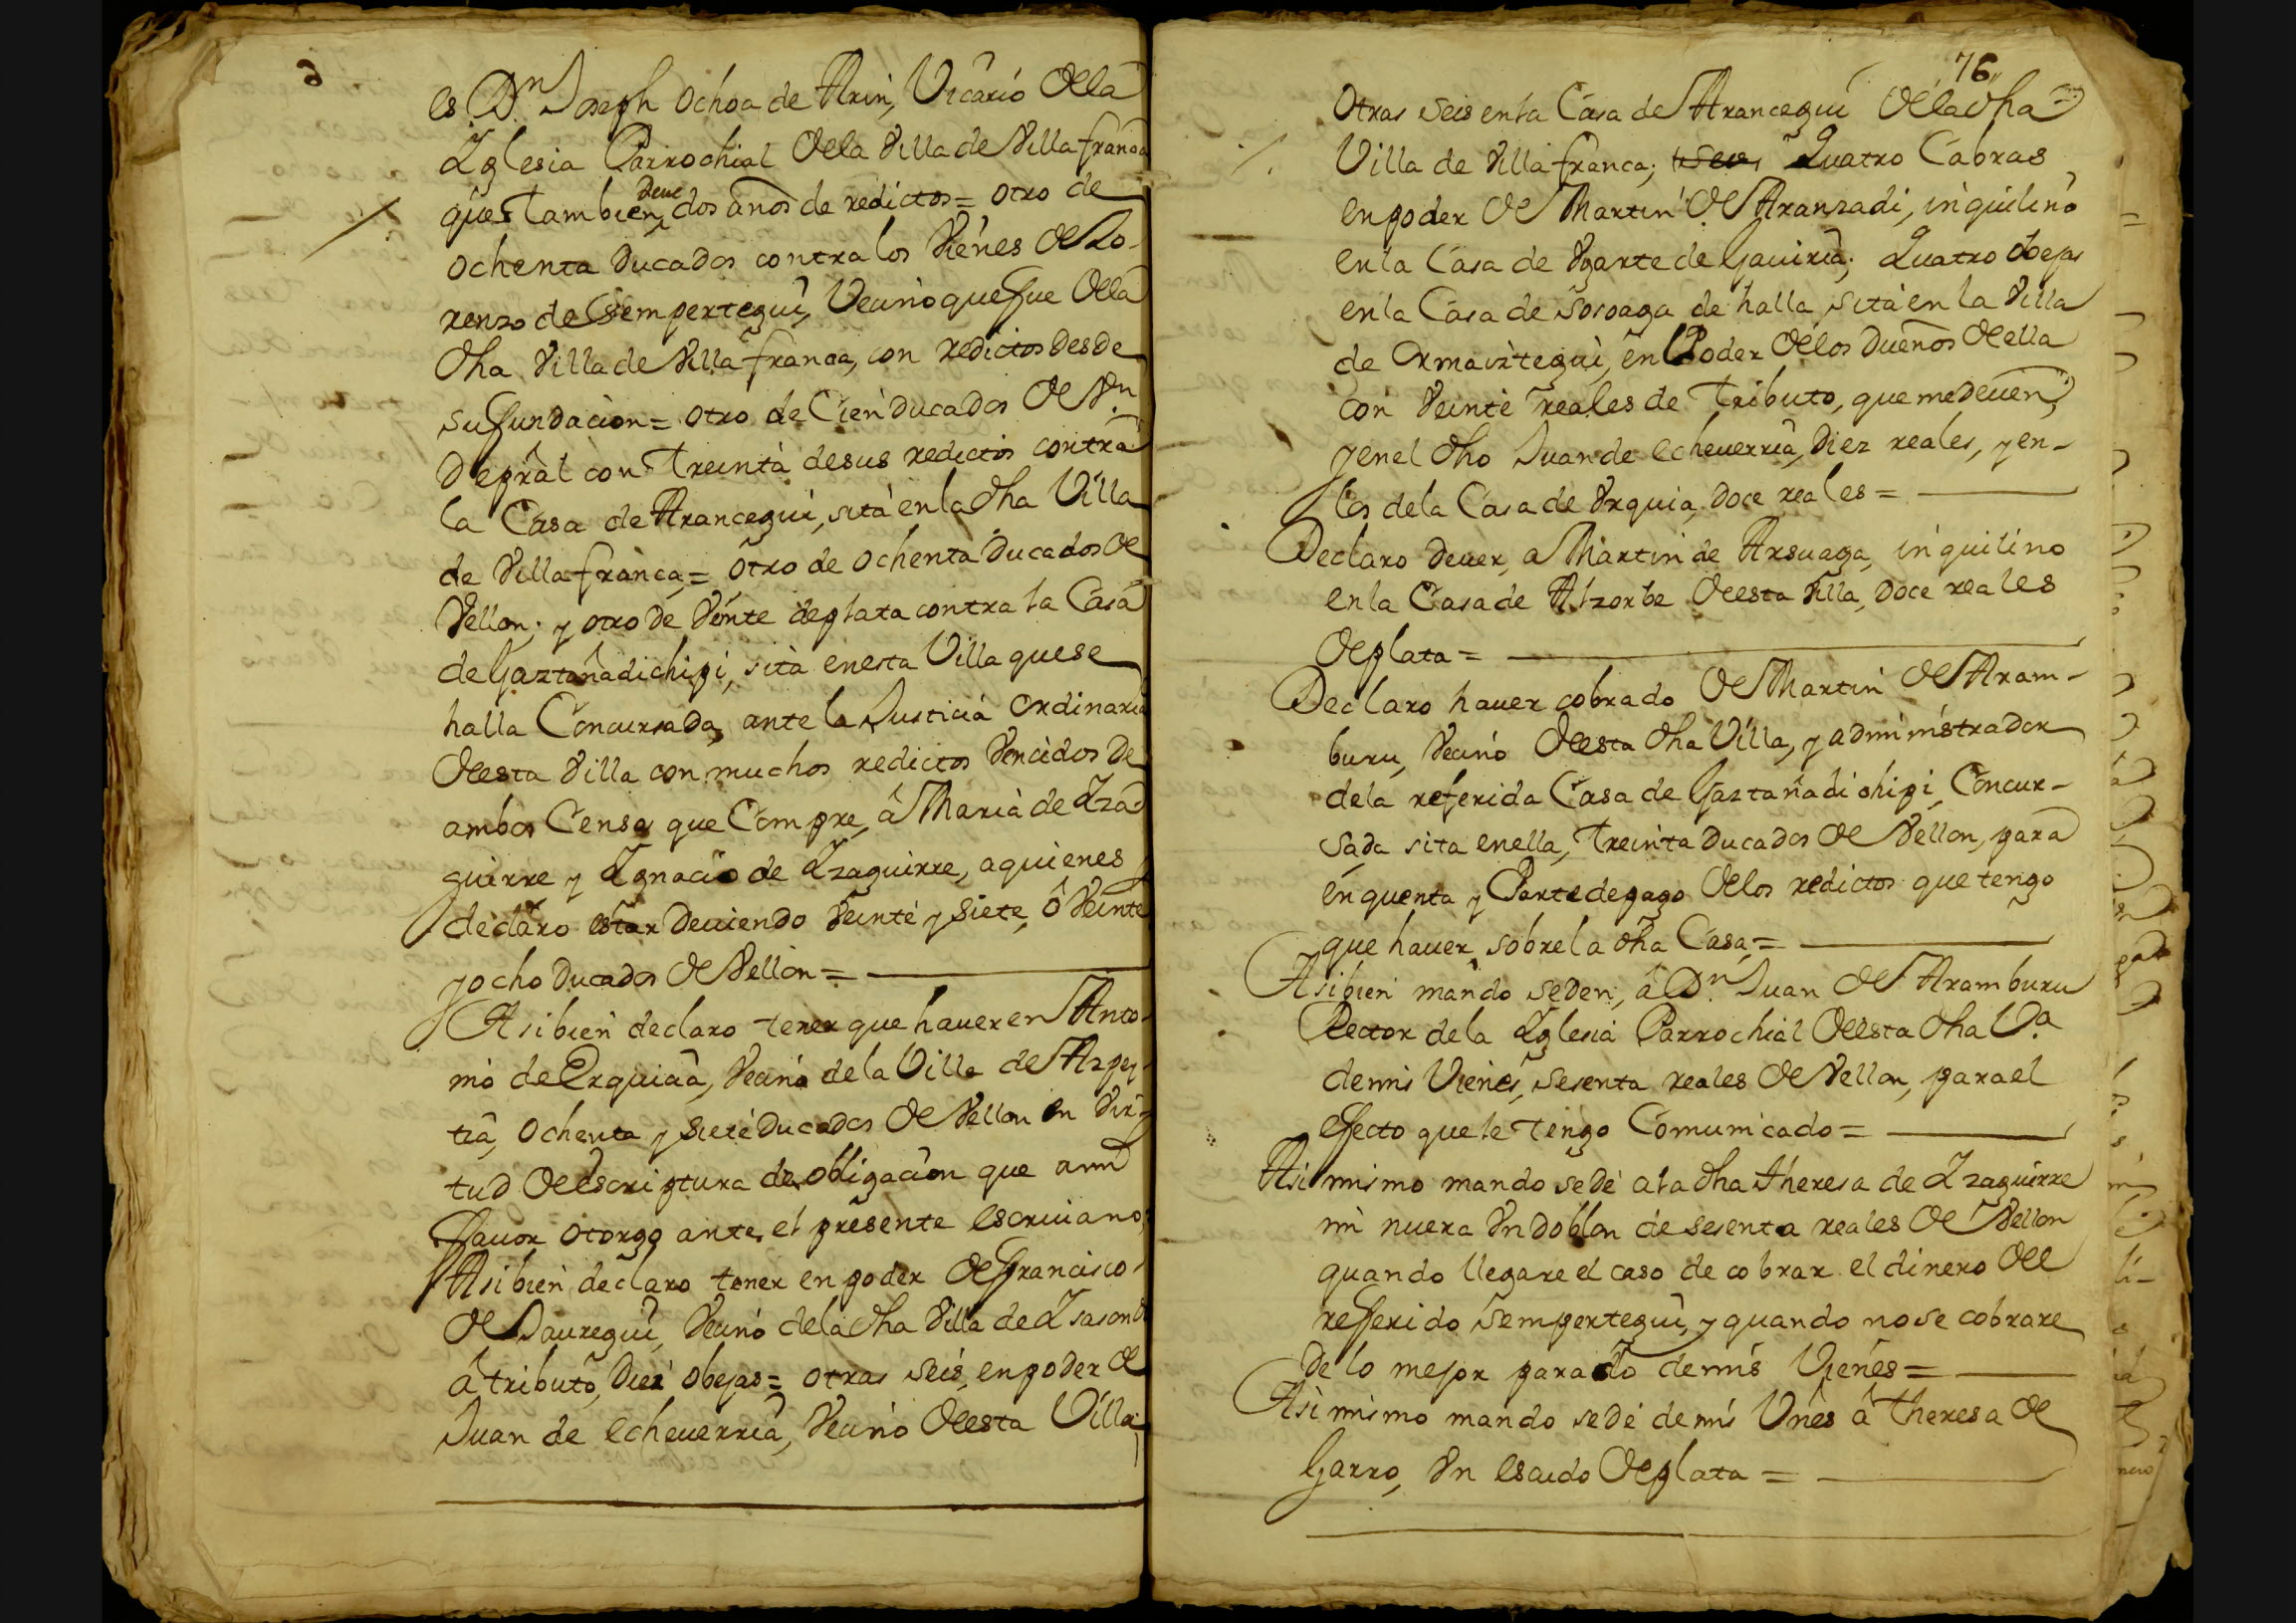 es Dn. Joseph Ochoa de Arin, Vicario Dela
Yglesia Parrochial Dela Villa de Villafranca
que tambien deue dos años de redictos = otro de
ochenta Ducados contra los Vienes De Lo-
renzo de Sempertegui, Vecino que fue Dela
Dha Villa de Villafranca, con redictos desde
su fundacion = otro de Cien ducados De Vn
Depral con treinta de sus redictos contra
la Casa de Arancegui, sita en la Dha Villa
de Villafranca, = otro de ochenta Ducados De
Vellon; y otro De Veinte de plata contra la Casa
de Gaztañadichipi, sita en esta Villa que se
halla Concursada, ante la Justicia Ordinaria
Desta Villa con muchos redictos Vencidos De
ambos Censos que Compre, â Maria de Yza
guirre y Ygnacio de Yzaguirre, a quienes
declaro estar Deuiendo Veinte y siete, ô Veinte
y ocho Ducados De Vellon =
Asi bien declaro tener que hauer en Anto-
nio de Erquiaâ, Vecino de la Villa de Azpey-
tiâ, ochenta y siete Ducados De Vellon en Vir-
tud De escriptura de obligacion que a mi
fauor otorgo ante el presente escriuano;
Asi bien declaro tener en poder De Francisco
De Jauregui, Vecino de la Dha Villa de Ysasond
â tributo, Diez obejas = otras seis, en poder De
Juan de Echeuerria, Vecino Desta Villa
76
Otras seis en la Casa de Arancegui Dela Dha
Villa de Villafranca; Quatro Cabras
en poder De Martin De Aranzadi, inquilino
en la Casa de Vgarte de Gauiria; Quatro obejas
en la Casa de Soroaga de halla sita en la Villa
de Ormaiztegui, en Poder Delos Dueños Della
con Veinte reales de tributo, que me deuen,
y en el Dho Juan de Echeuerria, Diez reales, y en-
los de la Casa de Vrquia, Doce reales =
Declaro Deuer, a Martin de Arsuaga, inquilino
en la Casa de Atzorbe Desta Villa, Doce reales
De plata =
Declaro hauer cobrado De Martin De Aram-
buru, Vecino Desta Dha Villa, y administrador
de la referida Casa de Gaztañadichipi, Concur-
sada sita en ella, Treinta Ducados De Vellon, para
en quenta y Parte de pago Delos redictos que tengo
que hauer, sobre la Dha Casa, =
Asi bien mando seden, â Dn. Juan De Aramburu
Rector de la Yglesia Parrochial Desta Dha Va.
de mis Vienes, sesenta reales De Vellon, para el
efecto que le tengo Comunicado =
Asi mismo mando se dé a la Dha Theresa de Yzaguirre
mi nuera Vn doblon de sesenta reales De Vellon
quando llegare el caso de cobrar el dinero Del
refferido Sempertegui, y quando no se cobrare
De lo mejor parado de mis Vienes =
Asi mismo mando se dé de mis Vnes â Theresa De
Garro, Vn escudo De plata =